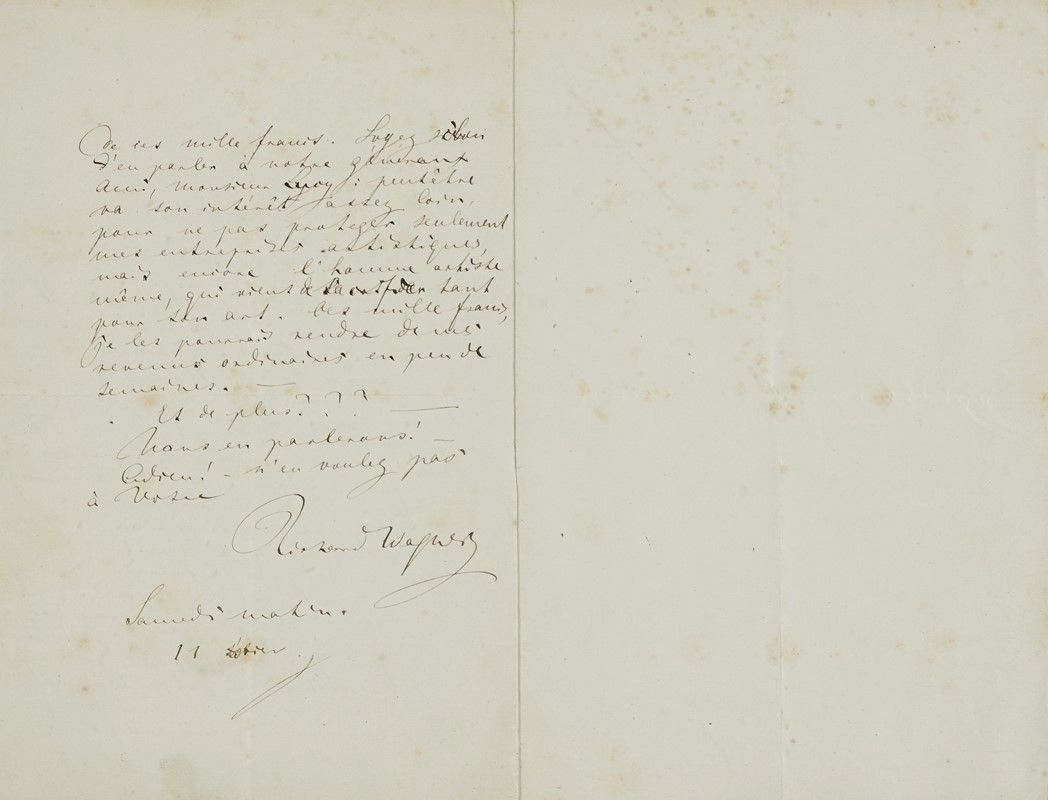 de ces mille francs. Soyez si bon
d'en parler à notre généreux
ami, monsieur Lucy : peutêtre
va son intérêt assez loin,
pour ne pas proteger seulement
mes entreprises artistiques,
mais encore l'homme artiste
même, qui vient de sacrifier tant
pour son art. Ces mille francs,
je les pourrais rendre de mes
revenus ordinaires en peu de
semaines. —
Et de plus??? —
Nous en parlerons! —
Adieu! – n'en voulez pas
à Votre
Richard Wagner
Samedi matin.
11